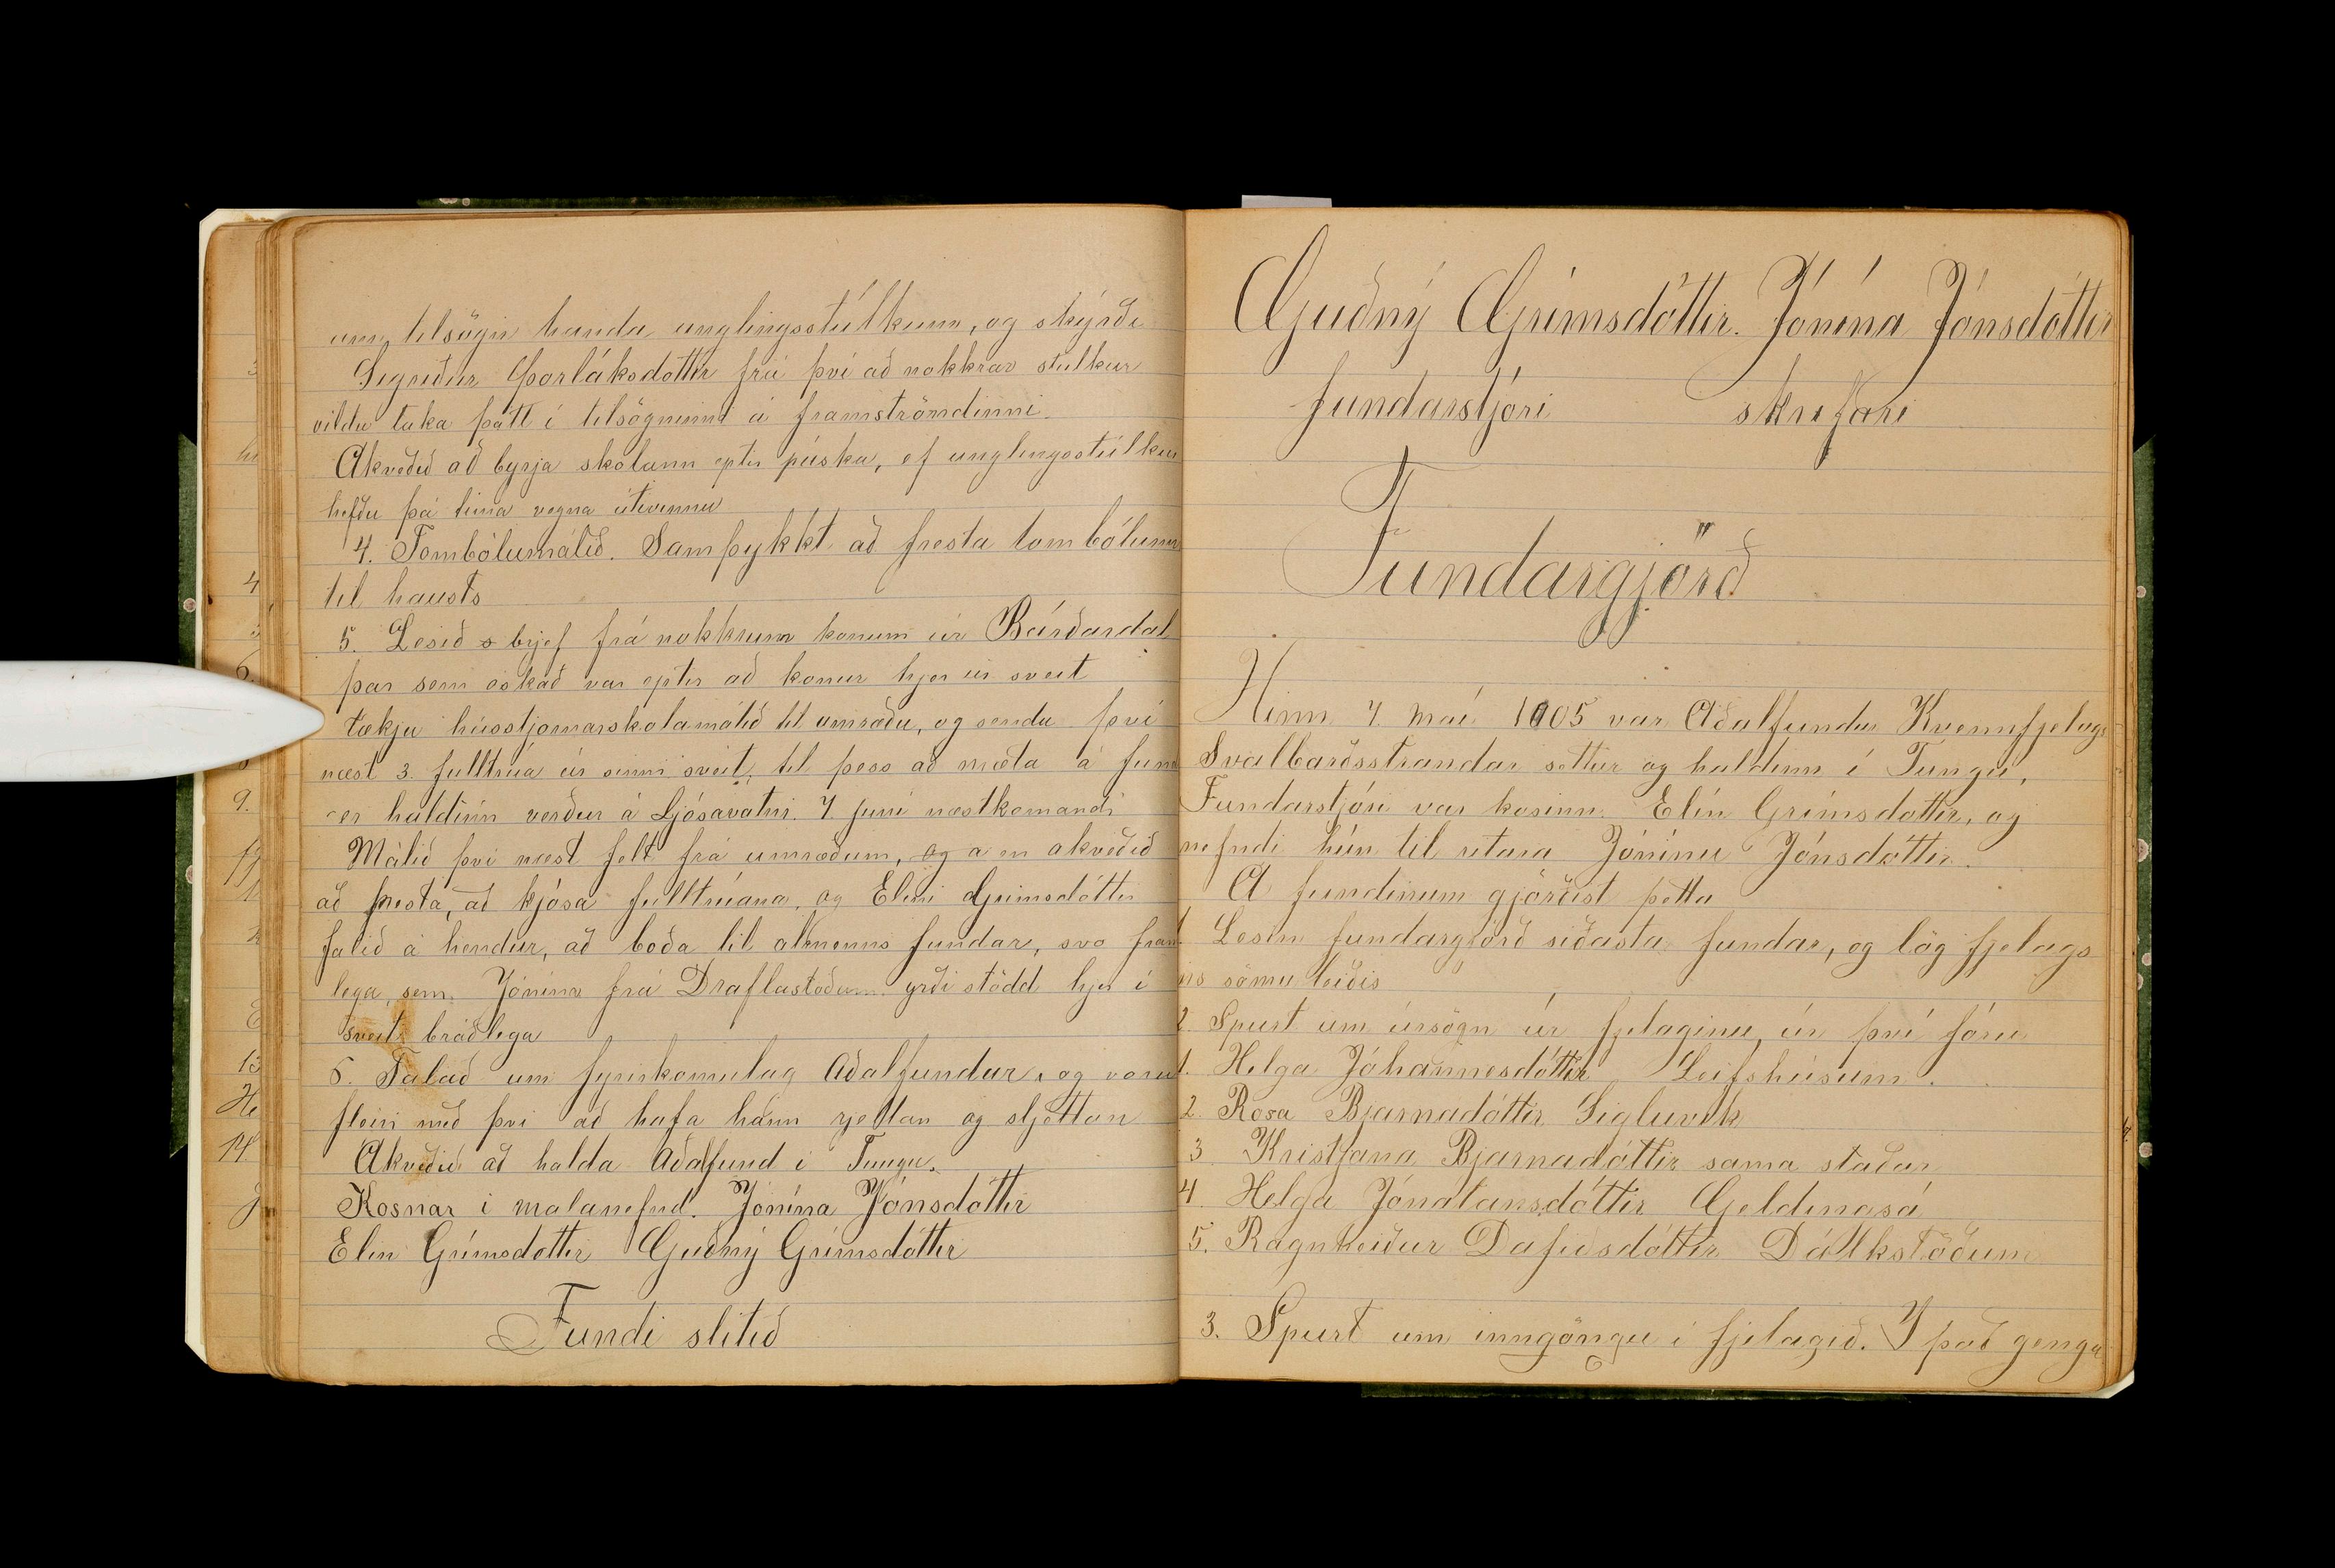 um tilsögn handa unglingsstúlkum, og skýrði
Sigríður Þorláksdóttir frá því að nokkrar stulkur
vildu taka þátt í tilsögninni á framströndinni.
Akveðið að byrja skólann eptir páska, ef unglingsstúlkur
hefðu þá tima vegna útivinnu
4. Tombólumálið. Samþykkt að fresta tombólunni
til hausts
5. Lesið brjef frá nokkrum konum úr Bárðardal
þar sem óskað var eptir að konur hjer úr sveit
tækju hússtjornarskolamálið til umræðu, og sendu því
næst 3. fulltrúa úr sinni sveit, til þess að mæta á fund
er haldinn verður á Ljósavatni. 7 juni næstkomandi
Málið því næst felt frá umræðum, og a en akveðið
að fresta, að kjósa fulltrúana, og Elini Grimsdóttir
falið á hendur, að boða til almenns fundar, svo fram
lega, sem Jónína frá Draflastöðum yrði stödd hjer í
sveit bráðlega
6. Talað um fyrirkomulag Aðalfundar, og voru
fleiri með því að hafa hann rjettan og sljettan
Akveðið að halda Aðalfund i Tungu.
Kosnar i malanefnd. Jónína Jónsdóttir
Elin Grímsdóttir Guðný Grímsdóttir
Fundi slitið
Guðný Grímsdóttir. Jónína Jónsdóttir
fundarstjóri skrifari
Fundargjörð
Hinn 7. maí 1905 var Aðalfundur Kvennfjelags
Svalbarðsstrandar settur og haldinn í Tungu,
Fundarstjóri var kosinn. Elín Grímsdóttir, og
nefndi hún til ritara Jónínu Jónsdóttir.
A fundinum gjörðist þetta
1. Lesin fundargjörð síðasta fundar, og lög fjelags
ins sömu leiðis
2. Spurt um úrsögn úr fjelaginu, úr því fóru
1. Helga Jóhannesdóttir Leifshúsum.
2. Rosa Bjarnadóttir Sigluvik
3 Kristjana Bjarnadóttir sama staðar
4. Helga Jónatansdóttir Geldingsá
5. Ragnheiður Dafiðsdóttir Dálkstöðum
3. Spurt um inngöngu i fjelagið. I það gengu